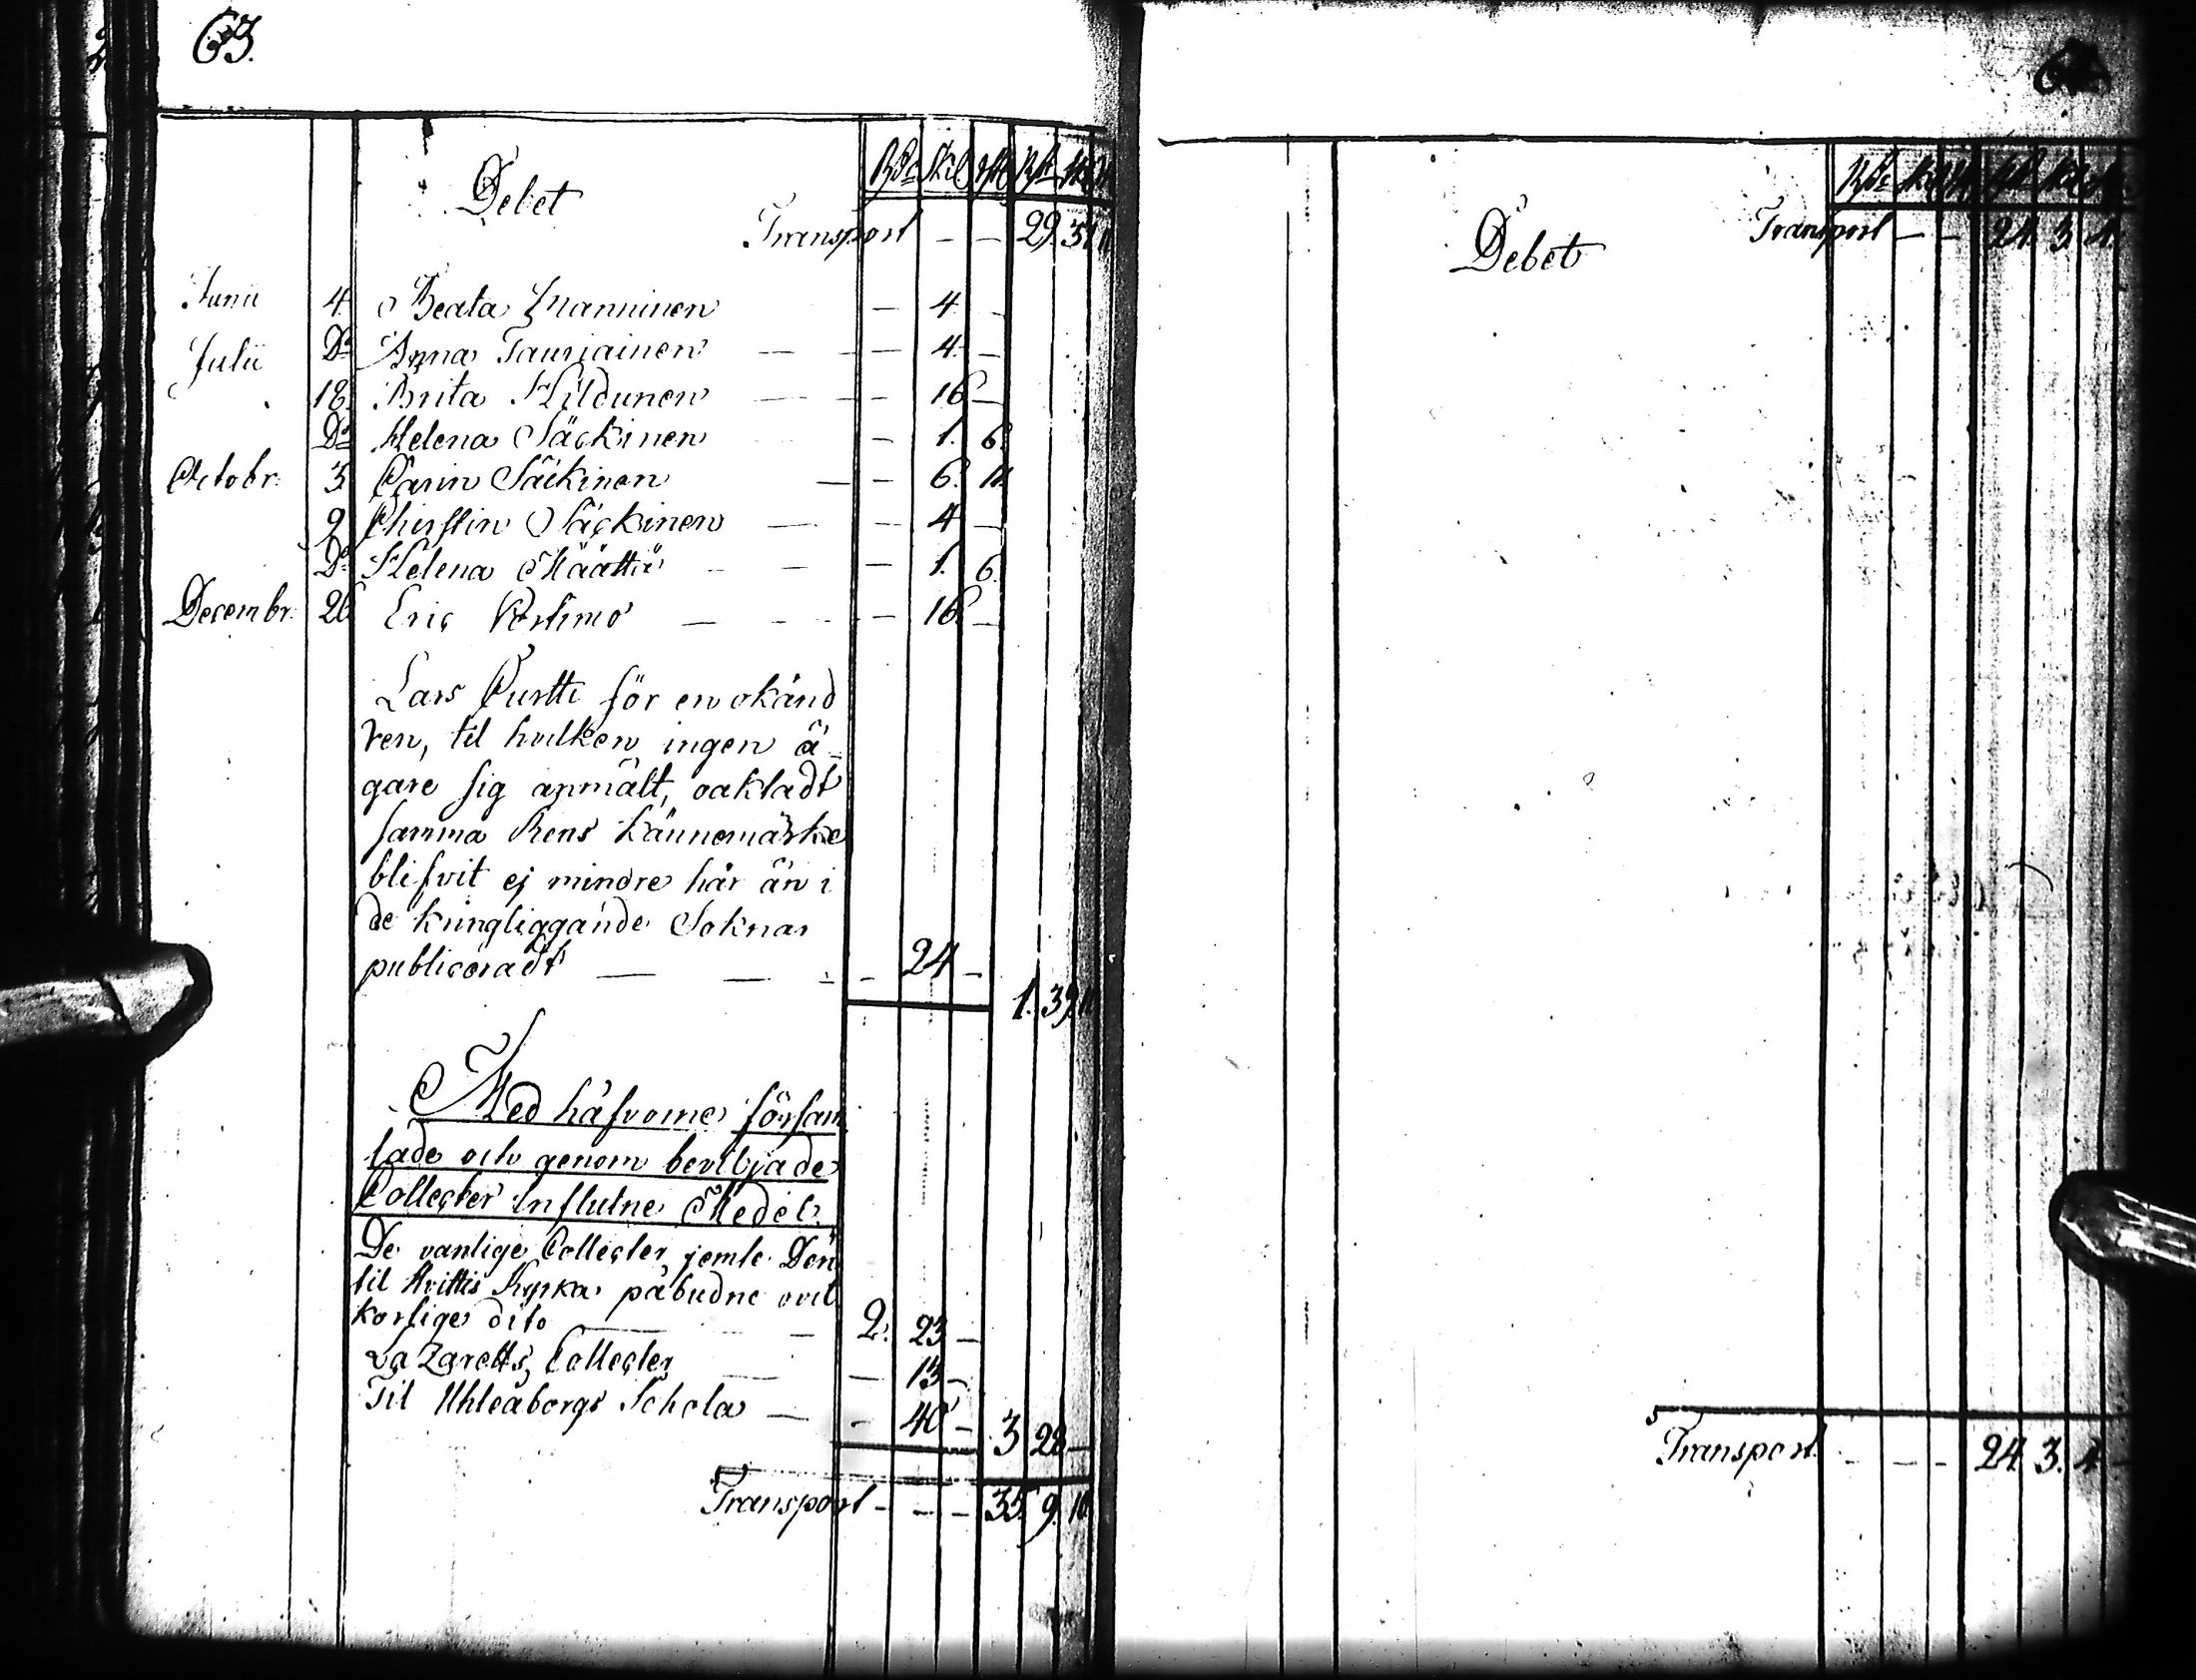 63.
Debet
Rdr Skil rst Rdr
Transport — — 29. 37 11
Junii 4. Beata Manninen — 4. —
Julii Do Anna Tauriainen — — 4. —
18. Brita Kildunen — — 16 —
Do Helena Säckinen — 1. 6.
Octobr. 3 Carin Säckinen — — 6. 11.
9 Christin Säckinen — — 4 —
Do Helena Määttä — — 1. 6.
Decembr. 26 Eric Portimo — — 16. —
Lars Curtti för en okänd
ren, til hvilken ingen ä-
gare sig anmält, oaktadt
samma Rens kännemärke
blifvit ej mindre här än i
de kringliggande Soknar
publiceradt — — — 24 —
1. 39. 11
Med håfvorne försam
lade och genom beviljade
Collecter Influtne Medel.
De vanlige Collecter jemte Den
til Hvittis Kyrka påbudne ovil
korlige dito — — 2. 23 —
Lazaretts Collecter — — 13 —
Til Uhleåborgs Schola — — 40 — 3 28 —
Transport — — — 35. 9. 10.
64
Debet
Transport — — 24. 3. 4.
Transport — — — 24. 3. 4.